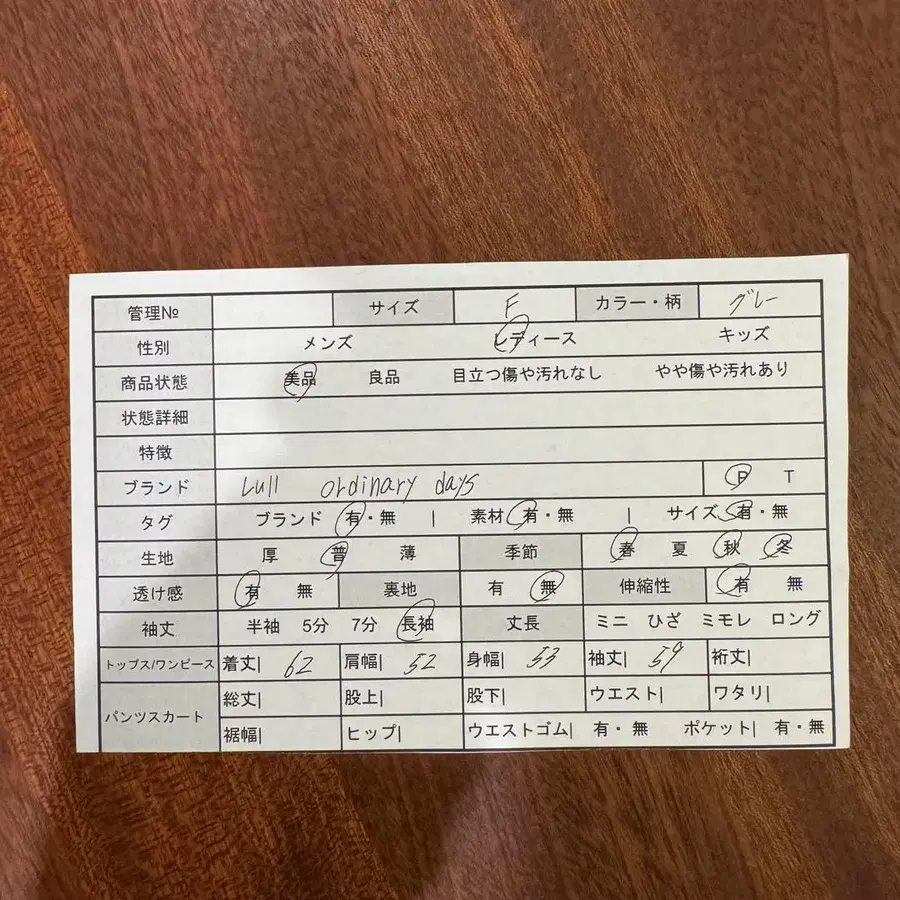 管理№ サイズ F カラー・柄 グレー
性別 メンズ レディース キッズ
商品状態 美品 良品 目立つ傷や汚れなし やや傷や汚れあり
状態詳細
特徴
ブランド Lull ordinary days P T
タグ ブランド 有・無 | 素材 有・無 | サイズ 有・無
生地 厚 普 薄 季節 春 夏 秋 冬
透け感 有 無 裏地 有 無 伸縮性 有 無
袖丈 半袖 5分 7分 長袖 丈長 ミニ ひざ ミモレ ロング
トップス/ワンピース 着丈| 62 肩幅| 52 身幅| 53 袖丈| 59 裄丈|
パンツスカート 総丈| 股上| 股下| ウエスト| ワタリ|
裾幅| ヒップ| ウエストゴム| 有・無 ポケット| 有・無